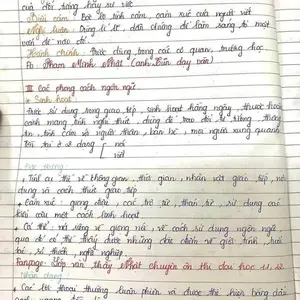 của đối tượng hay sự việc
Biểu cảm: Bộc lộ tình cảm, cảm xúc của người viết
Nghị luận: Dùng lí lẽ, dẫn chứng để làm sáng tỏ một
vấn đề nào đó.
Hành chính: Được dùng trong các cơ quan, trường học
Fb: Phạm Minh Nhật (Canh Bún dạy văn)
III Các phong cách ngôn ngữ
* Sinh hoạt
Được sử dụng trong giao tiếp, sinh hoạt hàng ngày, thuộc
cảnh mang tính nghi thức, dùng để trao đổi tư tưởng, thông
tin, tình cảm với người thân, bạn bè, mọi người xung quanh
Tồn tại ở 2 dạng nói
viết
Đặc trưng:
+ Tính cụ thể về không gian, thời gian, nhân vật giao tiếp, nội
dung và cách thức giao tiếp
+ Cảm xúc: giọng điệu, các trợ từ, thán từ, sử dụng các
kiểu câu một cách linh hoạt
+ Cá thể: nét riêng về giọng nói, về cách sử dụng ngôn ngữ
qua đó có thể thấy được những đặc điểm về giới tính, tuổi
tác, sở thích, nghề nghiệp.
Fanpage: Lớp văn thầy Nhật chuyên ôn thi đại học
Nhận dạng
+ Các lời thoại thường luân phiên và được thể hiện bằng dấu